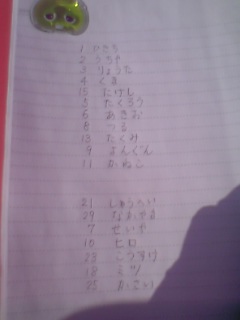 1 ひさし
2 うちや
3 りょうた
4 くま
15 たけし
5 たくろう
6 あきお
8 つる
13 たくみ
9 よんぐん
11 かねこ
21 しゅうへい
29 なかやま
7 せいや
10 ヒロ
23 こうすけ
18 ミツ
25